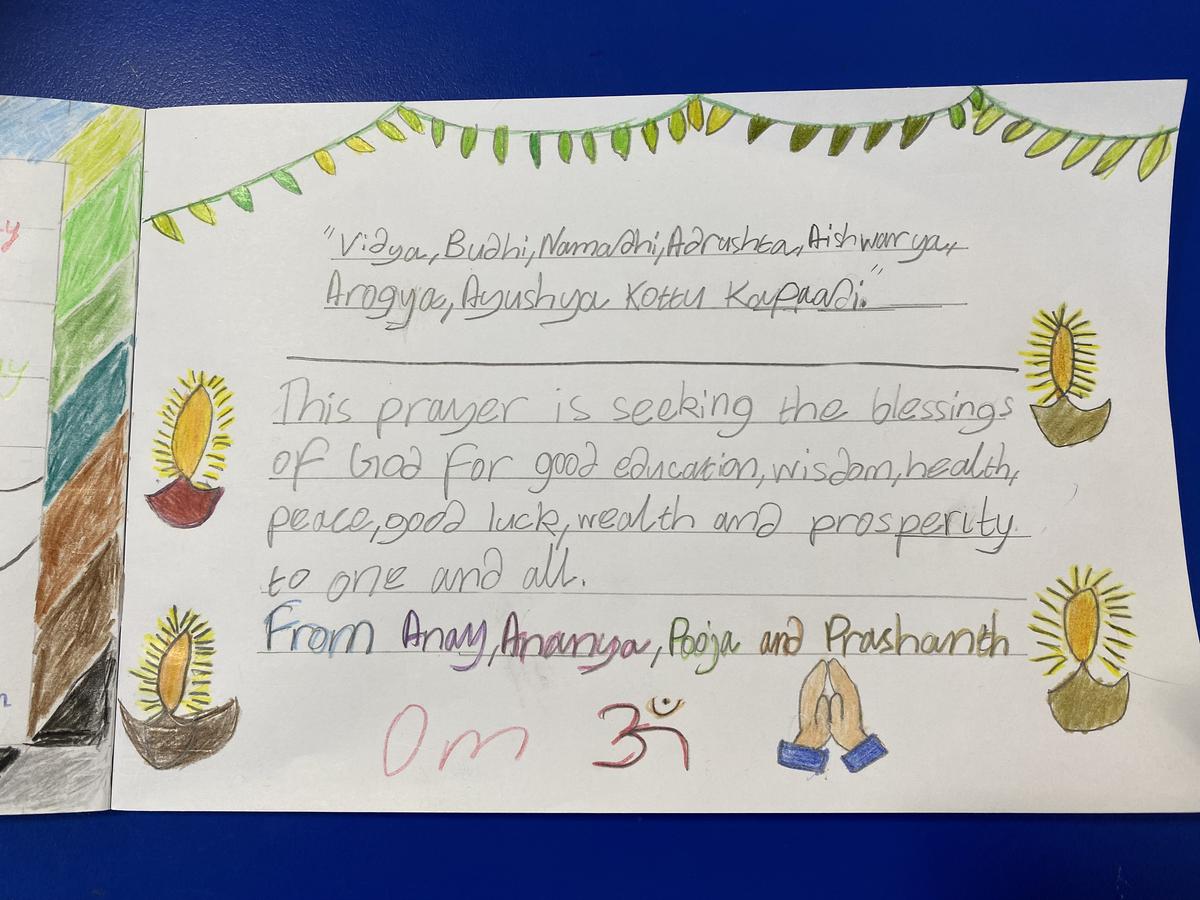 "Vidya, Budhi, Namadhi, Adrushta, Aishwarya,
Arogya, Ayushya Kottu Kapaadi."
This prayer is seeking the blessings
of God for good education, wisdom, health,
peace, good luck, wealth and prosperity
to one and all.
From Anay, Ananya, Pooja and Prashanth
Om ॐ